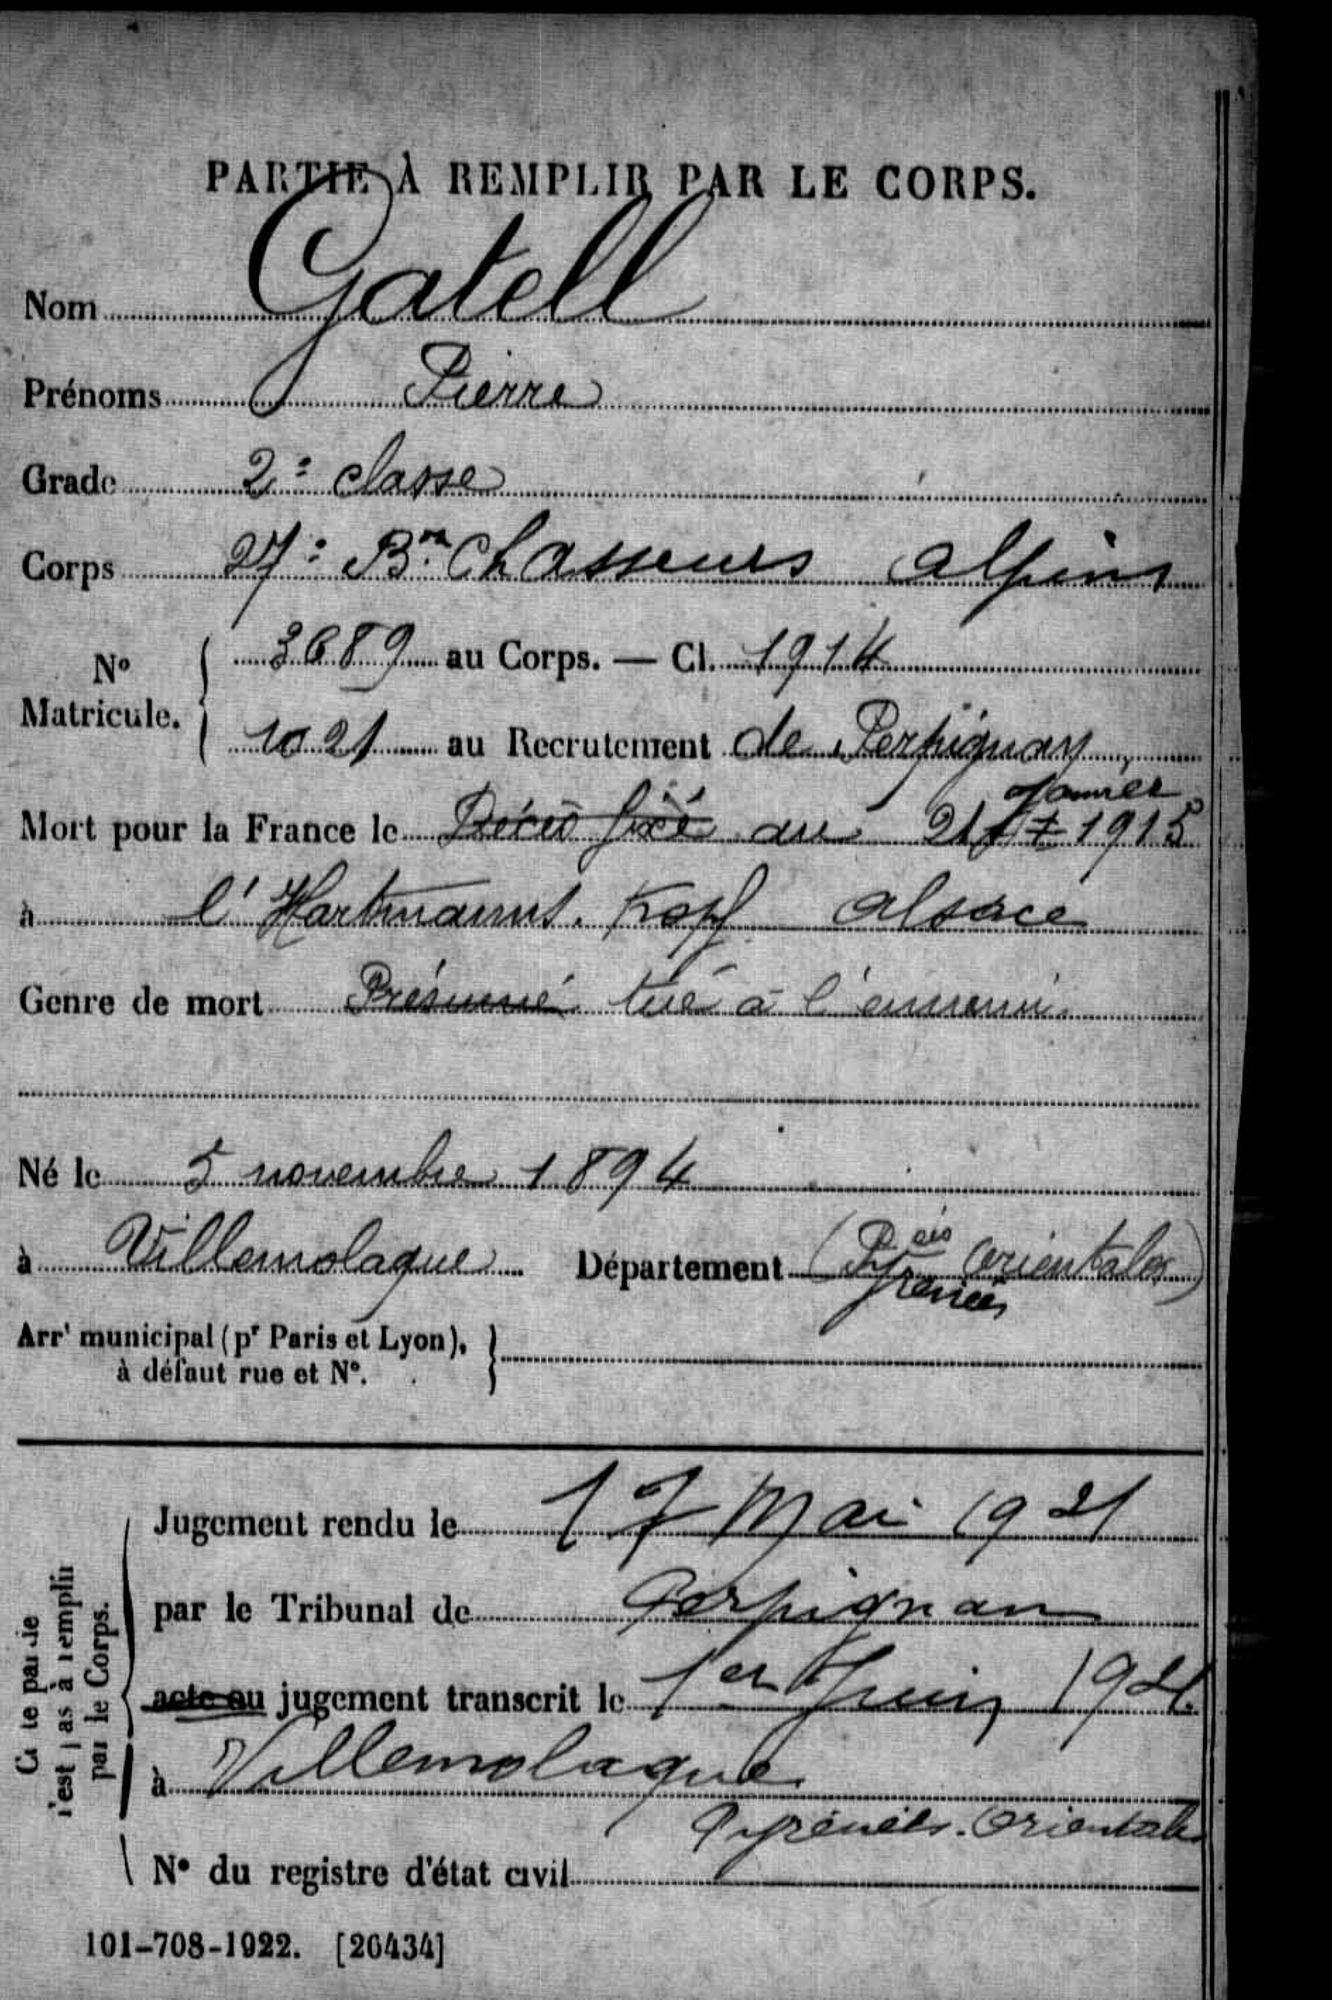 PARTIE À REMPLIR PAR LE CORPS.
Nom Gatell
Prénoms Pierre
Grade 2e classe
Corps 27e Bon Chasseurs alpins
No Matricule. 3689 au Corps. — Cl. 1914
1021 au Recrutement de Perpignan
Janvier
Mort pour la France le Décès fixé au 21 1915
à l'Hartmanns. Kopf alsace
Genre de mort Présumé tué à l'ennemi.
Né le 5 novembre 1894
à Villemolaque Département (Pées Orientales)
Pyrénées
Arrt municipal (pr Paris et Lyon),
à défaut rue et No.
Cette partie
n'est pas à remplir
par le Corps.
Jugement rendu le 17 Mai 1921
par le Tribunal de Perpignan
acte ou jugement transcrit le 1er Juin 1921.
à Villemolaque
Pyrénées-Orientales
No du registre d'état civil
101-708-1922. [26434]